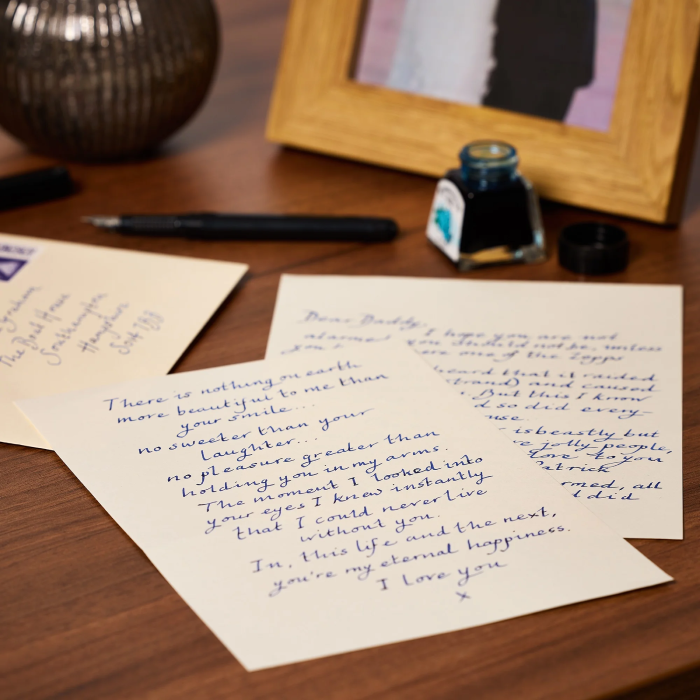 There is nothing on earth
more beautiful to me than
your smile...
no sweeter than your
laughter...
no pleasure greater than
holding you in my arms.
The moment I looked into
your eyes I knew instantly
that I could never live
without you.
In, this life and the next,
you're my eternal happiness.
I love you
x
Dear Daddy,
I hope you are not
alarmed
you should not be, unless
you
were one of the Zepps
heard that it raided
Strand) and caused
But this I know
d so did every-
use.
is beastly but
jolly people,
love to you
Patrick
rmed, all
I did
Graham
The Boat House
Southampton
Hampshire